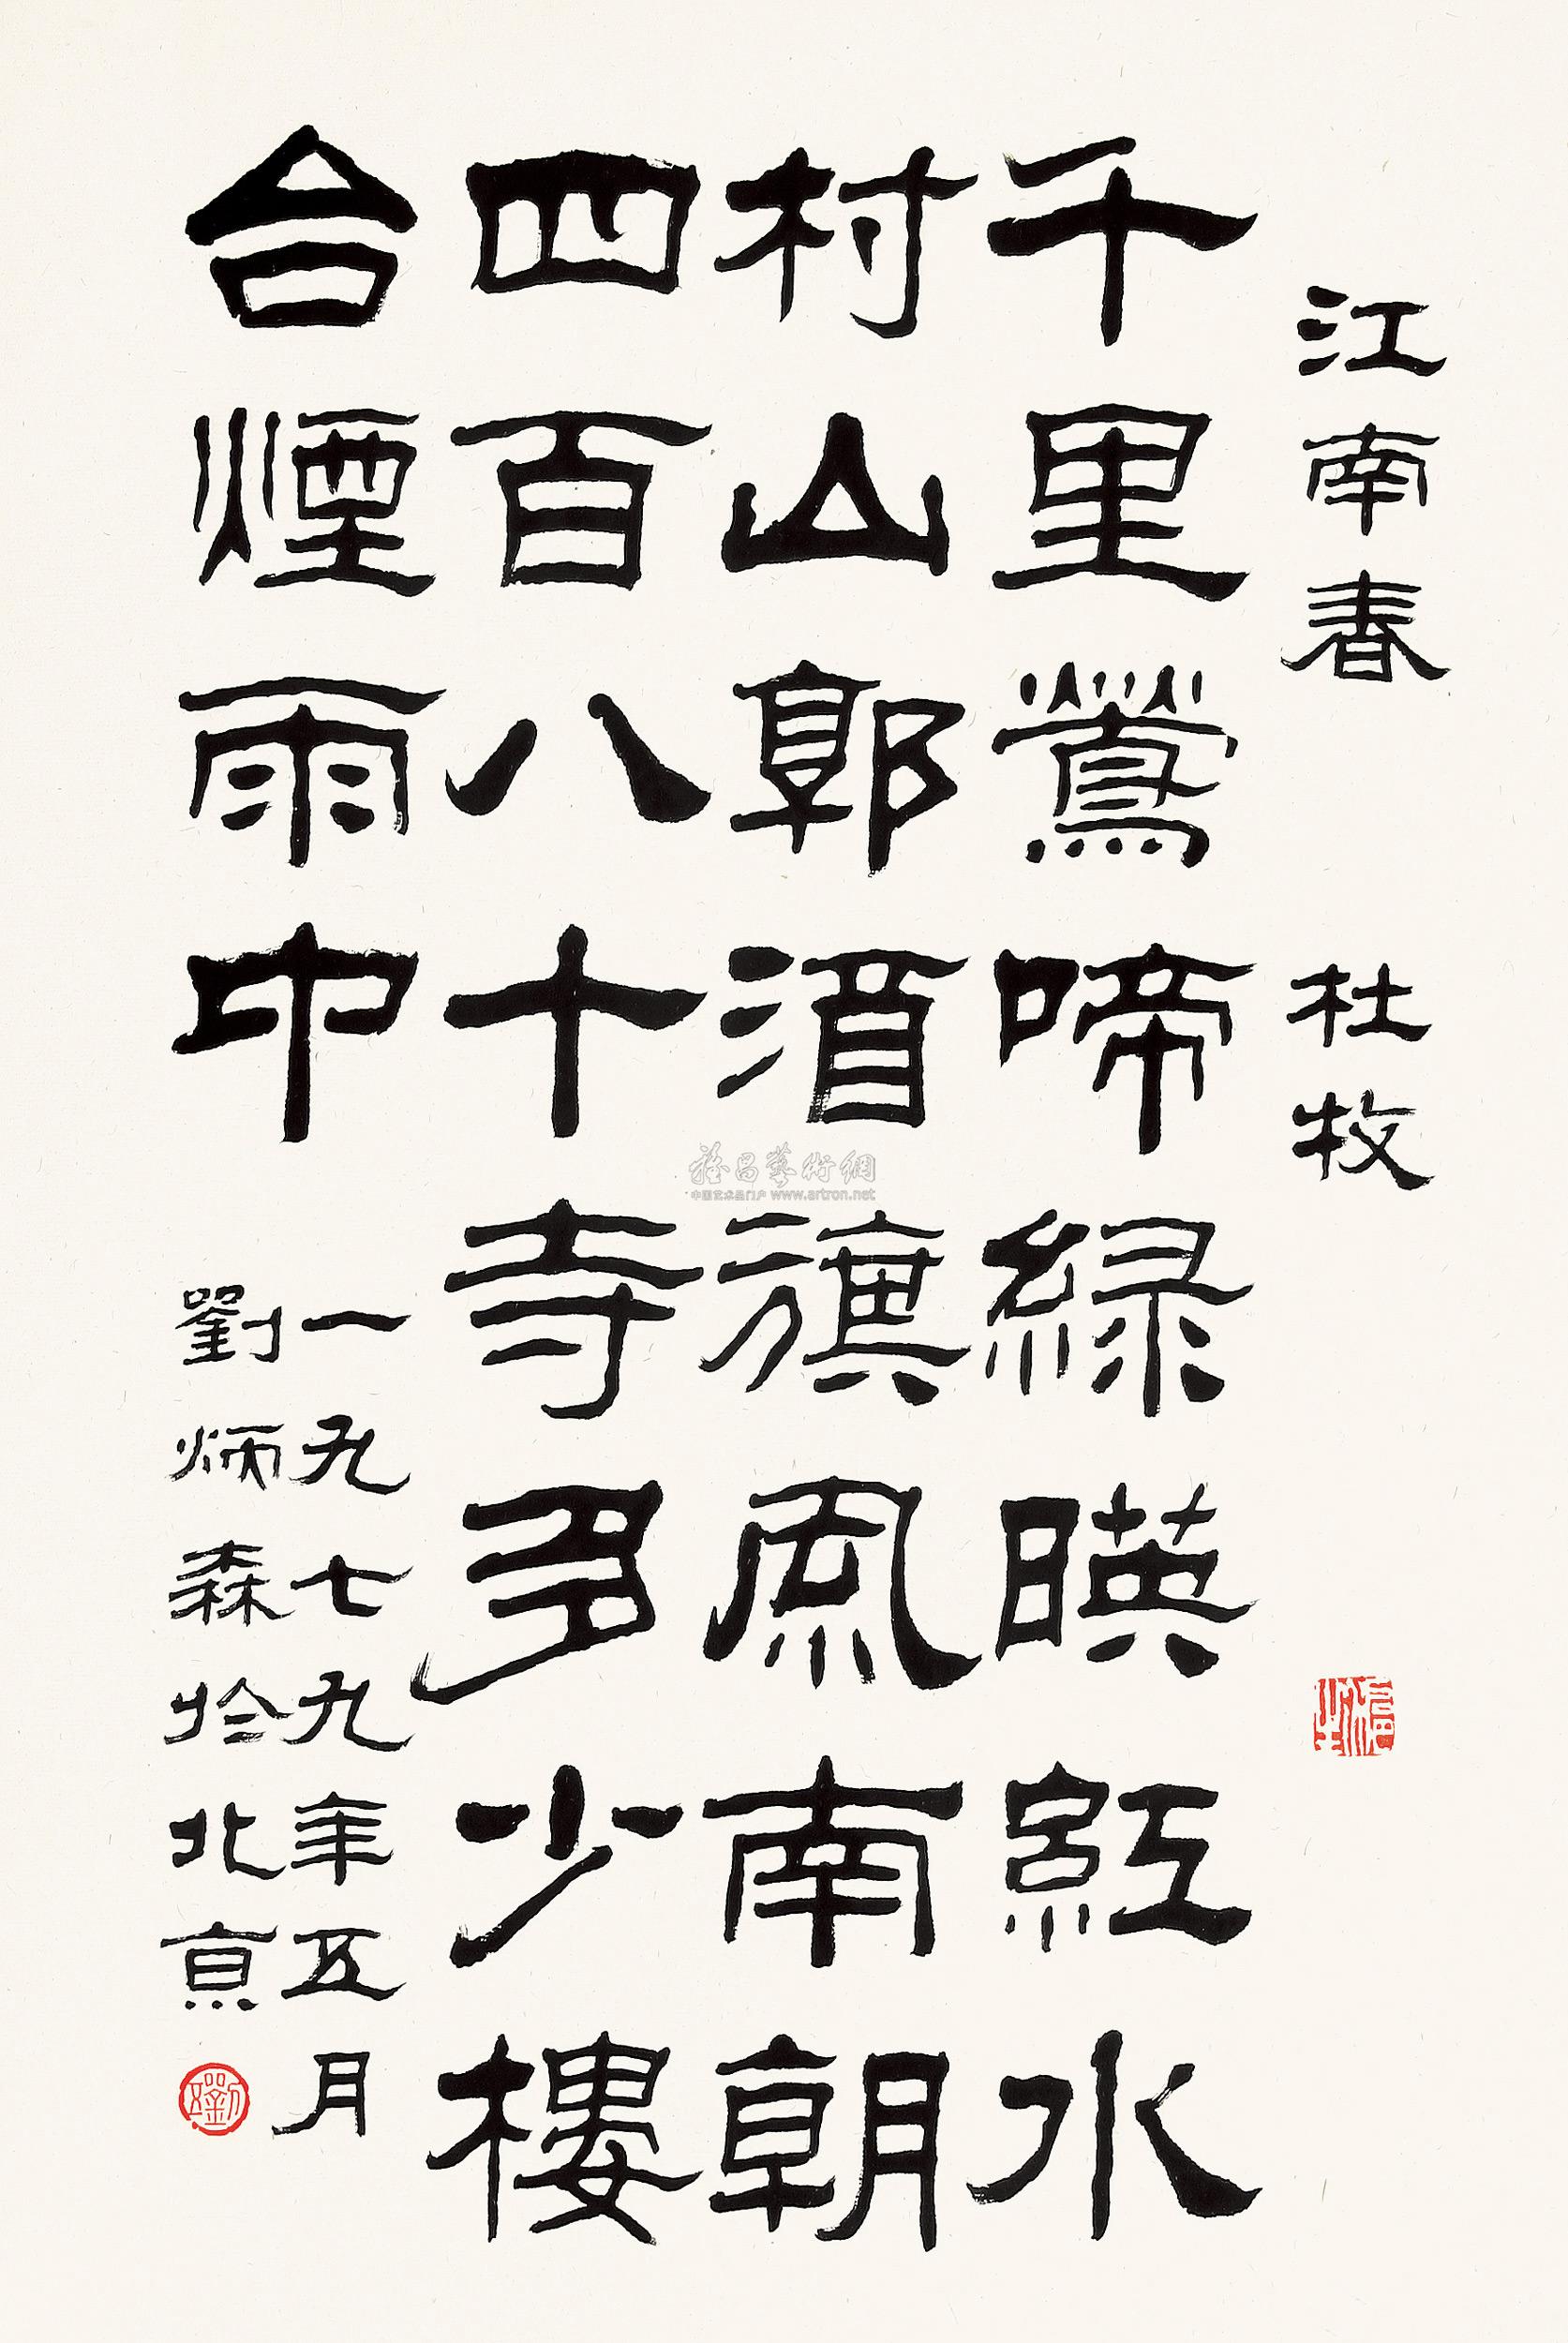 江南春 杜牧
千里鶯啼綠暎紅水
村山郭酒旗風南朝
四百八十寺多少樓
台煙雨中
一九七九年五月
劉炳森於北京
雅昌藝術網
中国艺术品门户 www.artron.net